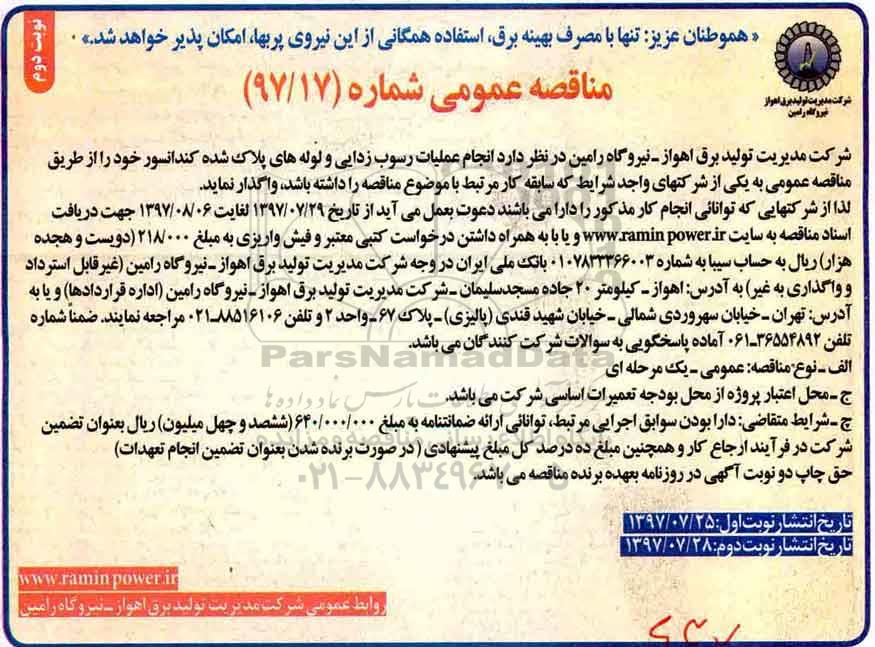 نوبت دوم
« هموطنان عزیز: تنها با مصرف بهینه برق، استفاده همگانی از این نیروی پربها، امکان پذیر خواهد شد.»
شرکت مدیریت تولید برق اهواز
نیروگاه رامین
مناقصه عمومی شماره (۹۷/۱۷)
شرکت مدیریت تولید برق اهواز ـ نیروگاه رامین در نظر دارد انجام عملیات رسوب زدایی و لوله های پلاک شده کندانسور خود را از طریق
مناقصه عمومی به یکی از شرکتهای واجد شرایط که سابقه کار مرتبط با موضوع مناقصه را داشته باشد، واگذار نماید.
لذا از شرکتهایی که توانائی انجام کار مذکور را دارا می باشند دعوت بعمل می آید از تاریخ ۱۳۹۷/۰۷/۲۹ لغایت ۱۳۹۷/۰۸/۰۶ جهت دریافت
اسناد مناقصه به سایت www.ramin power.ir و یا با به همراه داشتن درخواست کتبی معتبر و فیش واریزی به مبلغ ۲۱۸/۰۰۰ (دویست و هجده
هزار) ریال به حساب سیبا به شماره ۰۱۰۷۸۳۳۳۶۶۰۰۳ بانک ملی ایران در وجه شرکت مدیریت تولید برق اهواز ـ نیروگاه رامین (غیرقابل استرداد
و واگذاری به غیر) به آدرس: اهواز ـ کیلومتر ۲۰ جاده مسجدسلیمان ـ شرکت مدیریت تولید برق اهواز ـ نیروگاه رامین (اداره قراردادها) و یا به
آدرس: تهران ـ خیابان سهروردی شمالی ـ خیابان شهید قندی (پالیزی) ـ پلاک ۶۷ ـ واحد ۲ و تلفن ۸۸۵۱۶۱۰۶ـ۰۲۱ مراجعه نمایند. ضمناً شماره
تلفن ۳۶۵۵۴۸۹۲ـ۰۶۱ آماده پاسخگویی به سوالات شرکت کنندگان می باشد.
ParsNamadData
الف ـ نوع مناقصه: عمومی ـ یک مرحله ای
ج ـ محل اعتبار پروژه از محل بودجه تعمیرات اساسی شرکت می باشد.
چ ـ شرایط متقاضی: دارا بودن سوابق اجرایی مرتبط، توانائی ارائه ضمانتنامه به مبلغ ۶۴۰/۰۰۰/۰۰۰ (ششصد و چهل میلیون) ریال بعنوان تضمین
شرکت در فرآیند ارجاع کار و همچنین مبلغ ده درصد کل مبلغ پیشنهادی ( در صورت برنده شدن بعنوان تضمین انجام تعهدات)
حق چاپ دو نوبت آگهی در روزنامه بعهده برنده مناقصه می باشد.
تاریخ انتشار نوبت اول: ۱۳۹۷/۰۷/۲۵
تاریخ انتشار نوبت دوم: ۱۳۹۷/۰۷/۲۸
www.ramin power.ir
روابط عمومی شرکت مدیریت تولید برق اهواز ـ نیروگاه رامین